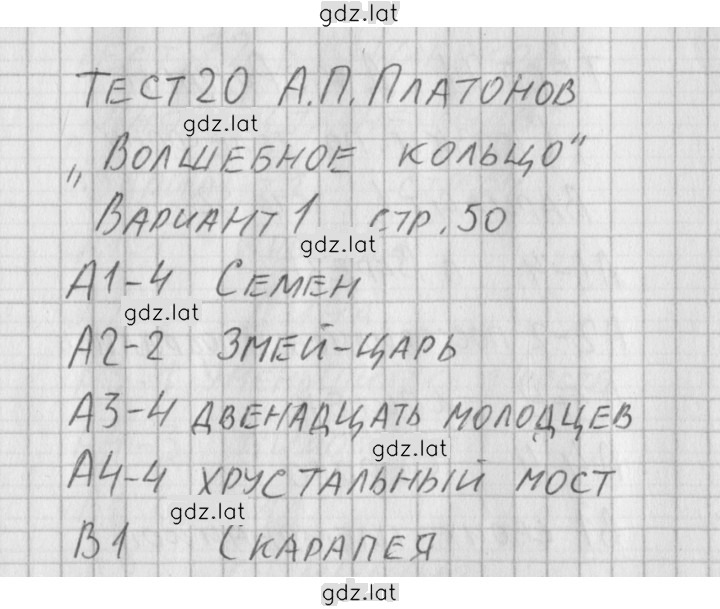 gdz.lat
ТЕСТ 20 А.П. ПЛАТОНОВ
gdz.lat
„ВОЛШЕБНОЕ КОЛЬЦО"
ВАРИАНТ 1 СТР. 50
gdz.lat
А1-4 СЕМЕН
gdz.lat
А2-2 ЗМЕЙ-ЦАРЬ
А3-4 ДВЕНАДЦАТЬ МОЛОДЦЕВ
gdz.lat
А4-4 ХРУСТАЛЬНЫЙ МОСТ
gdz.lat
В1 СКАРАПЕЯ
gdz.lat